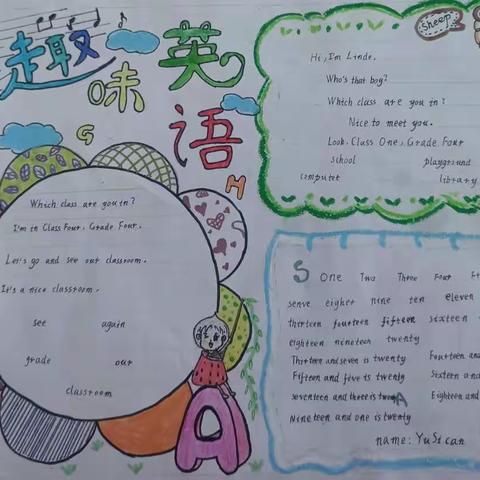 趣味英语
Sheep
G
H
Which class are you in?
I'm in Class Four, Grade Four.
Let's go and see our classroom.
It's a nice classroom.
see again
grade our
classroom
A
Hi, I'm Linde.
Who's that boy?
Which class are you in?
Nice to meet you.
Look, Class One, Grade Four
school playground
computet library
S One Two Three Four
senve eigher nine ten eleven
thirteen fourteen fifteen sixteen
eighteen nineteen twenty
Thirteen and seven is twenty Fourteen and
Fifteen and five is twenty Sixteen and
seventeen and three is twenty Eighteen and
Nineteen and one is twenty
name: YuSican